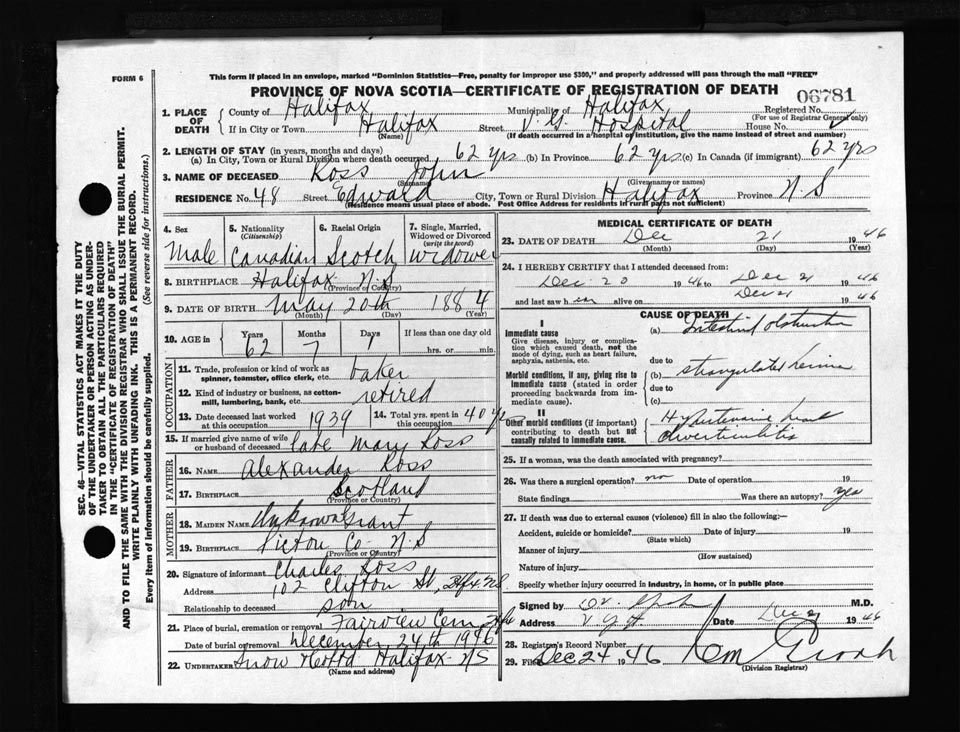 FORM 6
This form if placed in an envelope, marked "Dominion Statistics—Free, penalty for improper use $300," and properly addressed will pass through the mail "FREE"
PROVINCE OF NOVA SCOTIA—CERTIFICATE OF REGISTRATION OF DEATH
06781
1. PLACE OF DEATH { County of Halifax Municipality of Halifax Registered No.
(For use of Registrar General only)
If in City or Town Halifax Street V. G. Hospital House No.
(Name) (If death occurred in a hospital or institution, give the name instead of street and number)
2. LENGTH OF STAY (in years, months and days)
(a) In City, Town or Rural Division where death occurred 62 yrs (b) In Province 62 yrs (c) In Canada (if immigrant) 62 yrs
3. NAME OF DECEASED Ross John
(Surname) (Given name or names)
RESIDENCE No. 48 Street Edward City, Town or Rural Division Halifax Province N.S
(Residence means usual place of abode. Post Office Address for residents in rural parts not sufficient)
4. Sex Male
5. Nationality (Citizenship) Canadian
6. Racial Origin Scotch
7. Single, Married, Widowed or Divorced (write the word) Widower
8. BIRTHPLACE Halifax N.S
(Province or Country)
9. DATE OF BIRTH May 20th 1884
(Month) (Day) (Year)
10. AGE in Years Months Days If less than one day old
62 7 1 hrs. or min.
OCCUPATION
11. Trade, profession or kind of work as spinner, teamster, office clerk, etc. baker
12. Kind of industry or business, as cotton-mill, lumbering, bank, etc. retired
13. Date deceased last worked at this occupation 1939
14. Total yrs. spent in this occupation 40 yrs
15. If married give name of wife or husband of deceased late Mary Ross
FATHER
16. NAME Alexander Ross
17. BIRTHPLACE Scotland
(Province or Country)
MOTHER
18. MAIDEN NAME Unknown Grant
19. BIRTHPLACE Pictou Co. N.S
(Province or Country)
20. Signature of informant Charles Ross
Address 102 Clifton St, Hfx. NS
Relationship to deceased son
21. Place of burial, cremation or removal Fairview Cem Hfx
Date of burial or removal December 24th 1946
22. UNDERTAKER Snow & Co Ltd Halifax NS
(Name and address)
MEDICAL CERTIFICATE OF DEATH
23. DATE OF DEATH Dec 21 1946
(Month) (Day) (Year)
24. I HEREBY CERTIFY that I attended deceased from:
Dec 20 1946 to Dec 21 1946
and last saw h alive on Dec 21 1946
CAUSE OF DEATH
I
Immediate cause (a) Intestinal obstruction
Give disease, injury or complication which caused death, not the mode of dying, such as heart failure, asphyxia, asthenia, etc.
due to
Morbid conditions, if any, giving rise to immediate cause (stated in order proceeding backwards from immediate cause). (b) strangulated hernia
due to
(c)
II
Other morbid conditions (if important) contributing to death but not causally related to immediate cause. Hypertensive heart
diverticulitis
25. If a woman, was the death associated with pregnancy?
26. Was there a surgical operation? no Date of operation 19
State findings Was there an autopsy? yes
27. If death was due to external causes (violence) fill in also the following:—
Accident, suicide or homicide? Date of injury 19
(State which)
Manner of injury
(How sustained)
Nature of injury
Specify whether injury occurred in industry, in home, or in public place
Signed by Dr. M.D.
Address V.G.H. Date Dec 1946
28. Registrar's Record Number
29. Filed Dec 24 1946
(Division Registrar)
SEC. 46—VITAL STATISTICS ACT MAKES IT THE DUTY
OF THE UNDERTAKER OR PERSON ACTING AS UNDER-
TAKER TO OBTAIN ALL THE PARTICULARS REQUIRED
IN THE "CERTIFICATE OF REGISTRATION OF DEATH"
AND TO FILE THE SAME WITH THE DIVISION REGISTRAR WHO SHALL ISSUE THE BURIAL PERMIT.
WRITE PLAINLY WITH UNFADING INK. THIS IS A PERMANENT RECORD.
Every item of information should be carefully supplied. (See reverse side for instructions.)